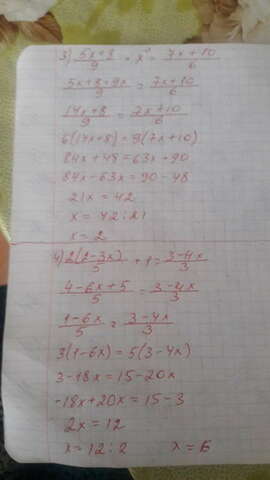 3) (5x+8)/9 + x = (7x+10)/6
(5x+8+9x)/9 = (7x+10)/6
(14x+8)/9 = (7x+10)/6
6(14x+8)=9(7x+10)
84x+48=63x+90
84x-63x=90-48
21x=42
x=42:21
x=2
4) 2(2-3x)/5 + 1 = (3-4x)/3
(4-6x+5)/5 = (3-4x)/3
(1-6x)/5 = (3-4x)/3
3(1-6x)=5(3-4x)
3-18x=15-20x
-18x+20x=15-3
2x=12
x=12:2 x=6